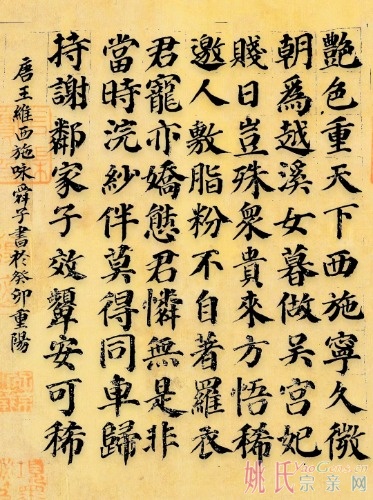 艷色重天下西施寧久微
朝爲越溪女暮做吴宫妃
賤日豈殊衆貴來方悟稀
邀人敷脂粉不自著羅衣
君寵亦嬌態君憐無是非
當時浣紗伴莫得同車歸
持謝鄰家子效顰安可稀
唐王維西施咏舜子書於癸卯重陽
姚氏宗亲网